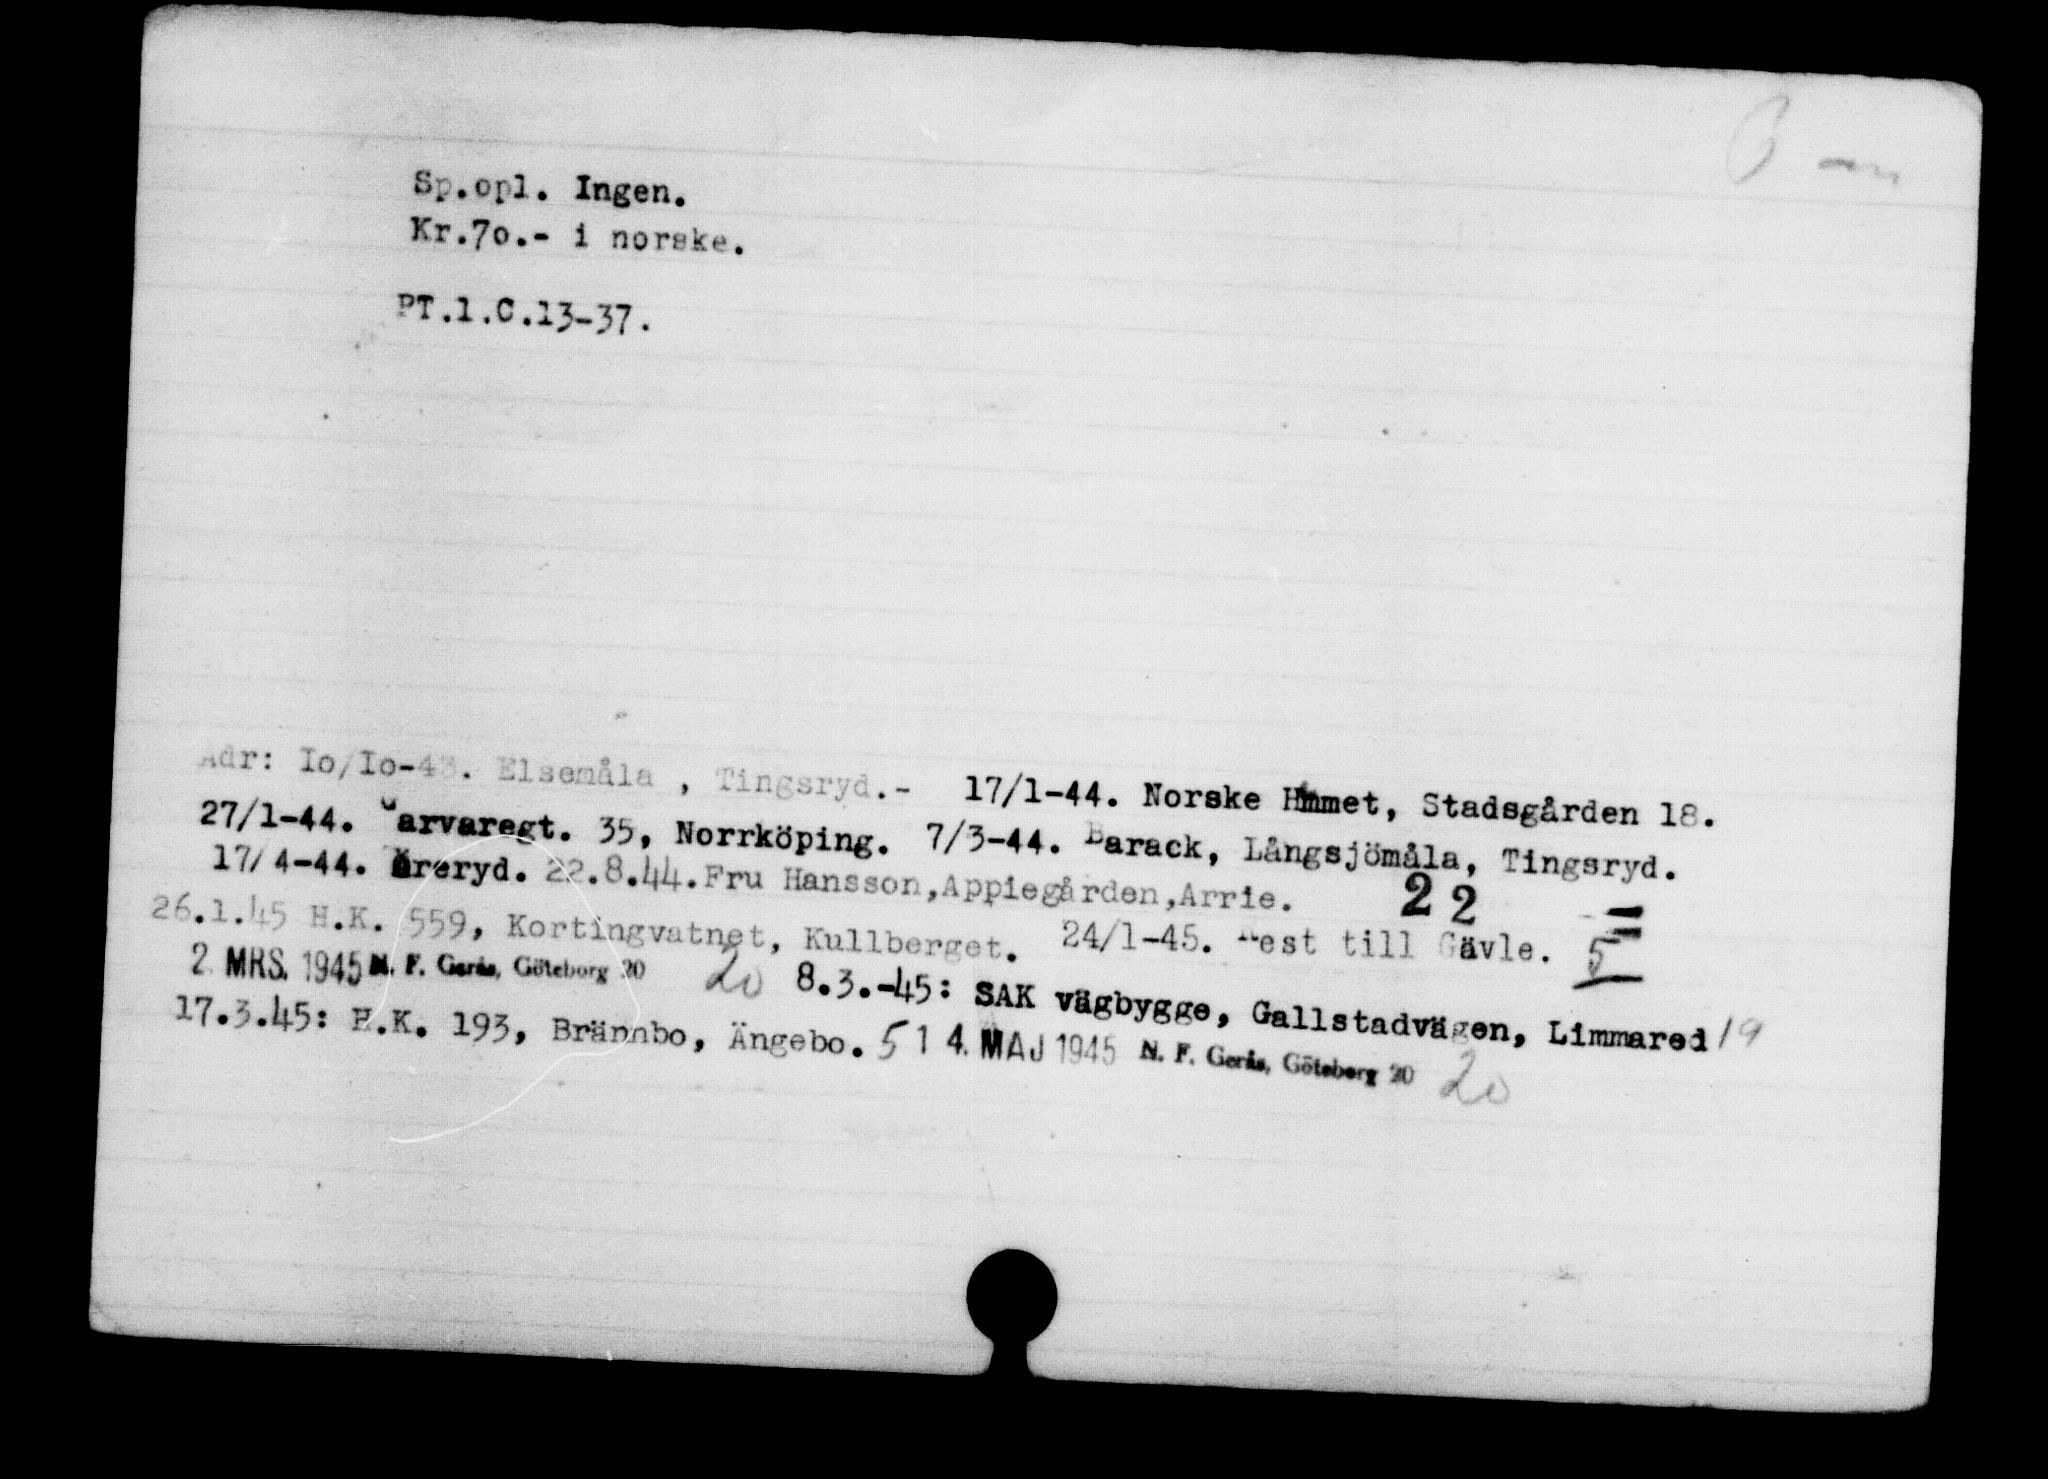 Sp.opl. Ingen.
Kr.7o.- i norske.
PT.1.C.13-37.
Adr: Io/Io-43. Elsemåla , Tingsryd.- 17/1-44. Norske Hmmet, Stadsgården 18.
27/1-44. Garvaregt. 35, Norrköping. 7/3-44. Barack, Långsjömåla, Tingsryd.
17/4-44. Öreryd. 22.8.44.Fru Hansson,Appiegården,Arrie. 22
26.1.45 H.K. 559, Kortingvatnet, Kullberget. 24/1-45. Rest till Gävle. 5
2. MRS. 1945 N. F. Gerås, Göteborg 20 20 8.3.-45: SAK vägbygge, Gallstadvägen, Limmared 19
17.3.45: H.K. 193, Brännbo, Ängebo. 5 14. MAJ 1945 N. F. Gerås, Göteborg 20 20